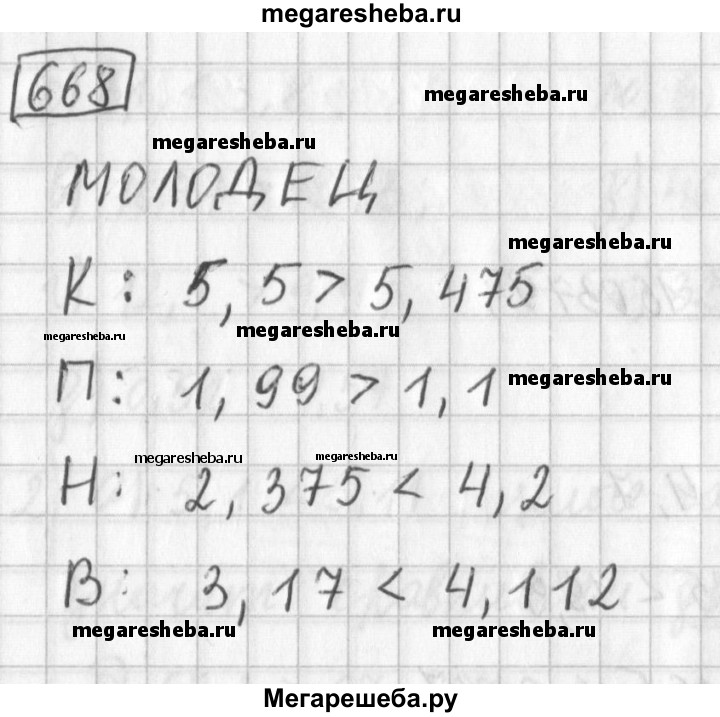 megaresheba.ru
668
megaresheba.ru
megaresheba.ru
МОЛОДЕЦ
megaresheba.ru
К: 5,5 > 5,475
megaresheba.ru
megaresheba.ru
П: 1,99 > 1,1
megaresheba.ru
megaresheba.ru
megaresheba.ru
Н: 2,375 < 4,2
В: 3,17 < 4,112
megaresheba.ru
megaresheba.ru
Мегарешеба.ру